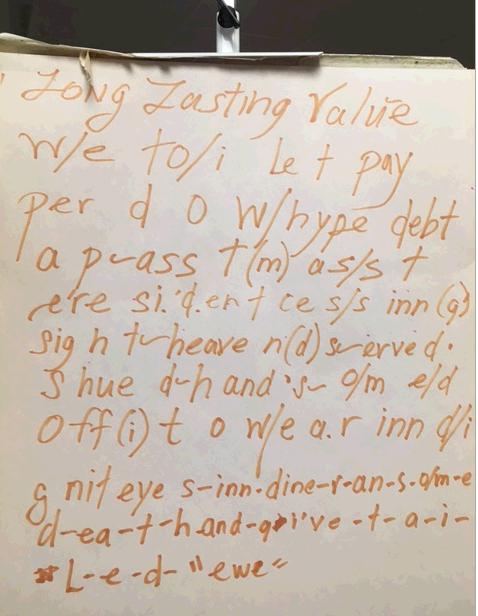 Long Lasting Value
W/e to/i Let pay
per d o w/hype debt
a p-ass t(m) as/s t
ere si.d.ent ce s/s inn(g)
sig h t-heave n(d) s-erved.
S hue d-h and's- o/m e/d
Off(i) t o w/e a.r inn d/i
g nit eye s-inn-dine-r-an-s-o/m-e
d-ea-t-h-and-g-i've-t-a-i-
*L-e-d-"ewe"